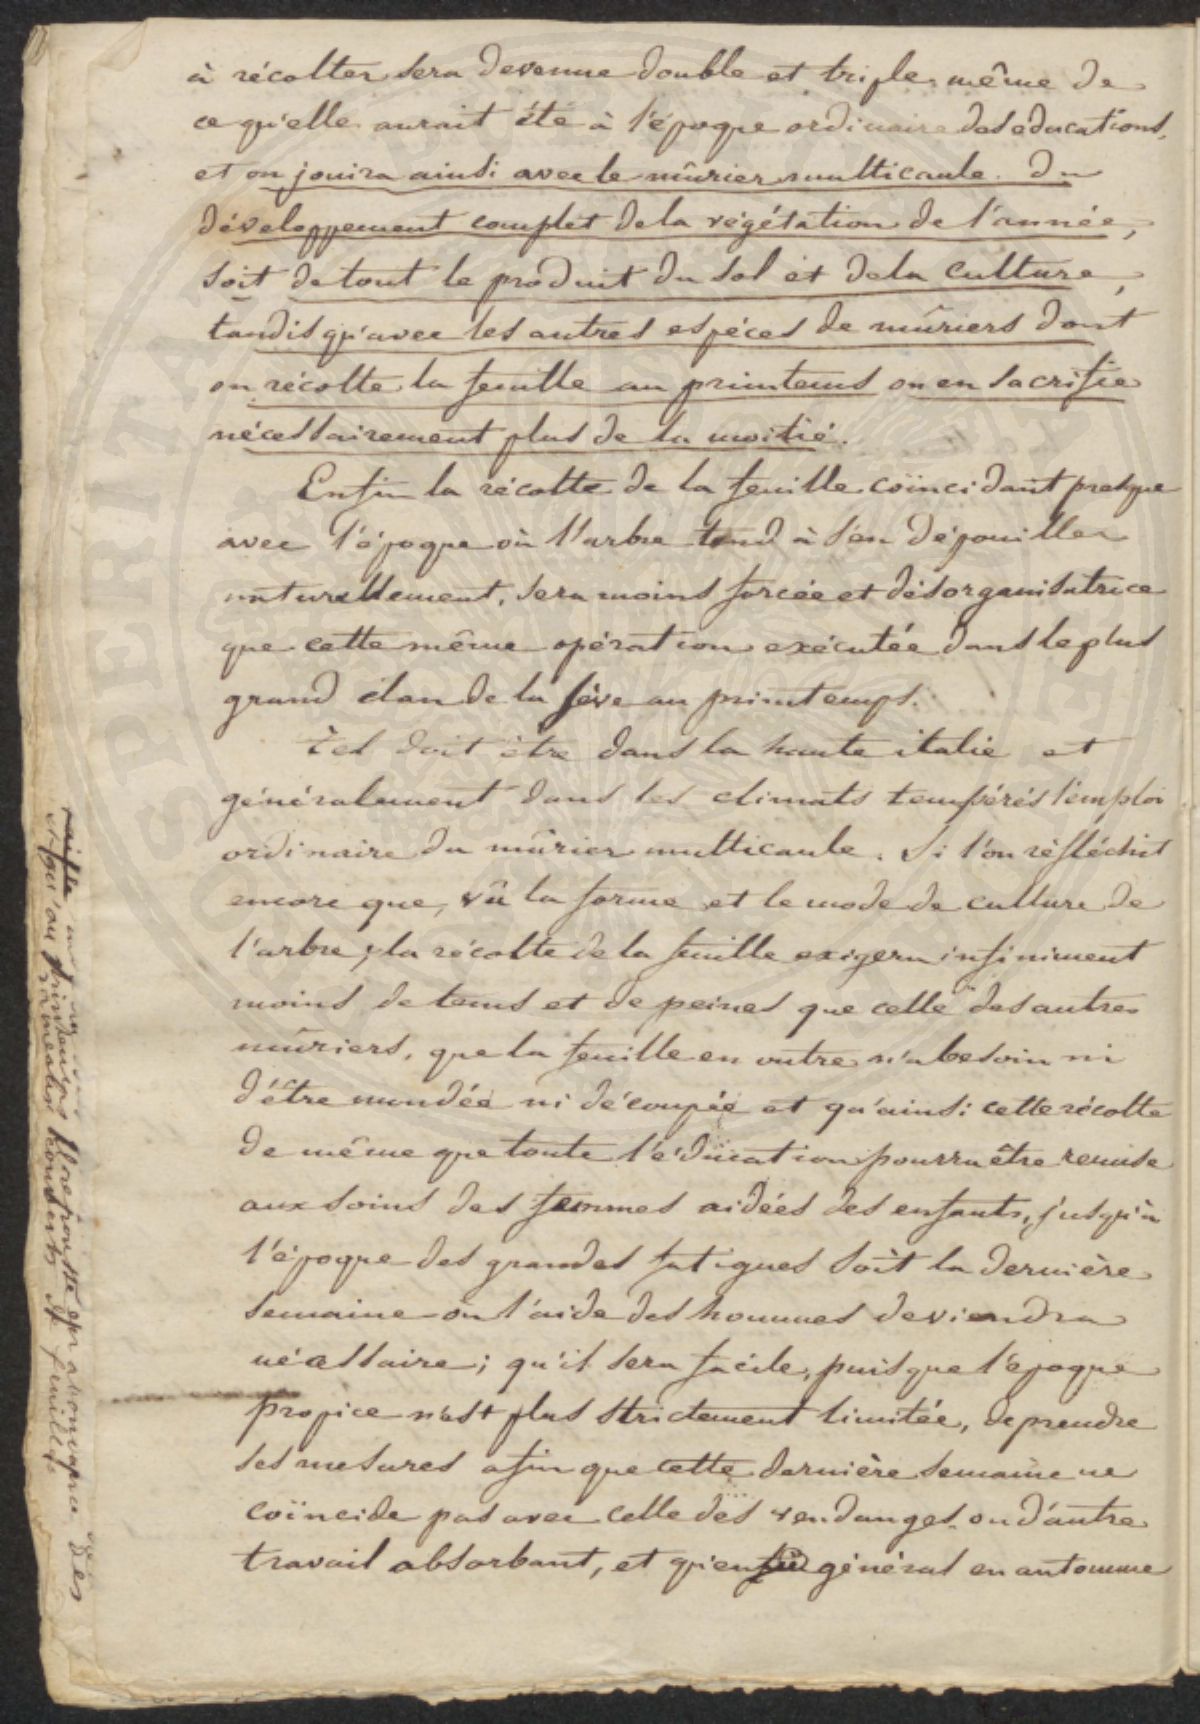 à récolter sera devenue double et triple même de
ce qu'elle aurait été à l'époque ordinaire des éducations,
et on jouira ainsi avec le mûrier multicaule. du
développement complet de la végétation de l'année,
soit de tout le produit du sol et de la culture,
tandis qu'avec les autres espèces de mûriers dont
on récolte la feuille au printems on en sacrifie
nécessairement plus de la moitié.
Enfin la récolte de la feuille coïncidant presque
avec l'époque où l'arbre tend à s'en dépouiller
naturellement, sera moins forcée et désorganisatrice
que cette même opération exécutée dans le plus
grand élan de la sève au printemps.
Tel doit être dans la haute italie et
généralement dans les climats tempérés l'emploi
ordinaire du mûrier multicaule. Si l'on réfléchit
encore que, vû la forme et le mode de culture de
l'arbre, la récolte de la feuille exigera infiniment
moins de tems et de peines que celle des autres
mûriers, que la feuille en outre n'a besoin ni
d'être mondée ni découpée et qu'ainsi cette récolte
de même que toute l'éducation pourra être remise
aux soins des femmes aidées des enfants, jusqu'à
l'époque des grandes fatigues soit la dernière
semaine où l'aide des hommes deviendra
nécessaire; qu'il sera facile, puisque l'époque
propice n'est plus strictement limitée, de prendre
ses mesures afin que cette dernière semaine ne
coïncide pas avec celle des vendanges ou d'autre
travail absorbant, et qu'enfin général en automne
qu'au printemps
rameaux feuilles
SPERITAS